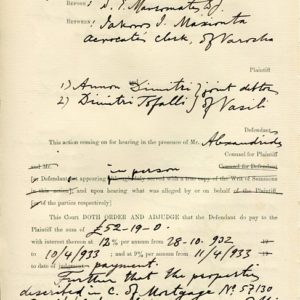 BEFORE: N. T. Mavromates DJ.
BETWEEN: Iakovos I. Mavronta
advocates clerk, of Varosha
Plaintiff
1) Annou Dimitri } joint debtors
2) Dimitri Tofalli } of Vasili
Defendant
This action coming on for hearing in the presence of Mr. Alexandrides
Counsel for Plaintiff
and Mr. in person Counsel for Defendant
[or Defendant not appearing though duly served with a true copy of the Writ of Summons
in this action], and upon hearing what was alleged by or on behalf of the Plaintiff
[or of the parties respectively]
This Court DOTH ORDER AND ADJUDGE that the Defendant do pay to the
Plaintiff the sum of £52-19-0.
with interest thereon at 12% per annum from 28-10-932
to 10/4/933 : at 9% per annum from 11/4/933
to date of judgment payment
Further that the properties
described in C. of Mortgage No 57130